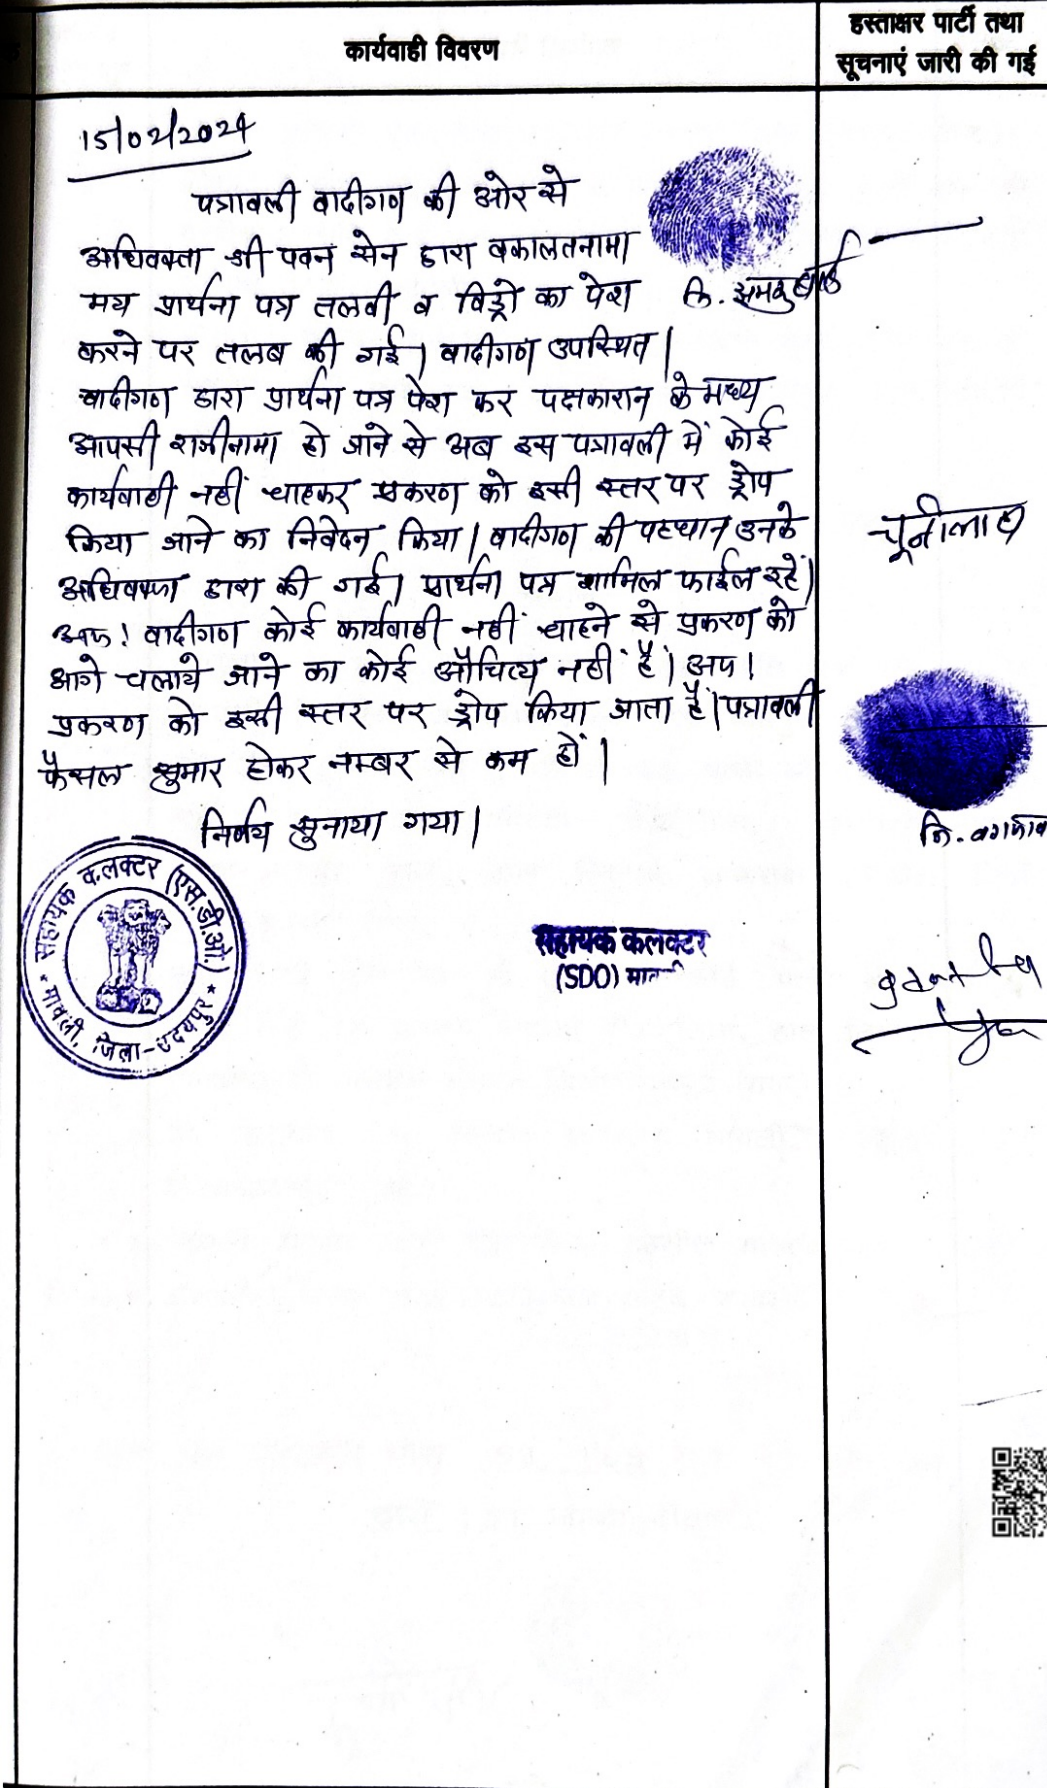 कार्यवाही विवरण
हस्ताक्षर पार्टी तथा
सूचनाएं जारी की गई
15/02/2024
पत्रावली वादीगण की ओर से
अधिवक्ता श्री पवन सेन द्वारा वकालतनामा
मय प्रार्थना पत्र तलबी व विड्रो का पेश
करने पर तलब की गई। वादीगण उपस्थित।
वादीगण द्वारा प्रार्थना पत्र पेश कर पक्षकारान के मध्य
आपसी राजीनामा हो जाने से अब इस पत्रावली में कोई
कार्यवाही नहीं चाहकर प्रकरण को इसी स्तर पर ड्रोप
किया जाने का निवेदन किया। वादीगण की पहचान उनके
अधिवक्ता द्वारा की गई। प्रार्थना पत्र शामिल फाईल रहें।
अतः वादीगण कोई कार्यवाही नहीं चाहने से प्रकरण को
आगे चलाये जाने का कोई औचित्य नहीं है। अतः
प्रकरण को इसी स्तर पर ड्रोप किया जाता है। पत्रावली
फैसल शुमार होकर नम्बर से कम हों।
निर्णय सुनाया गया।
नि.
चूनीलाल
नि.
सहायक कलक्टर (एस.डी.ओ.)
मावली, जिला-उदयपुर
सहायक कलक्टर
(SDO)